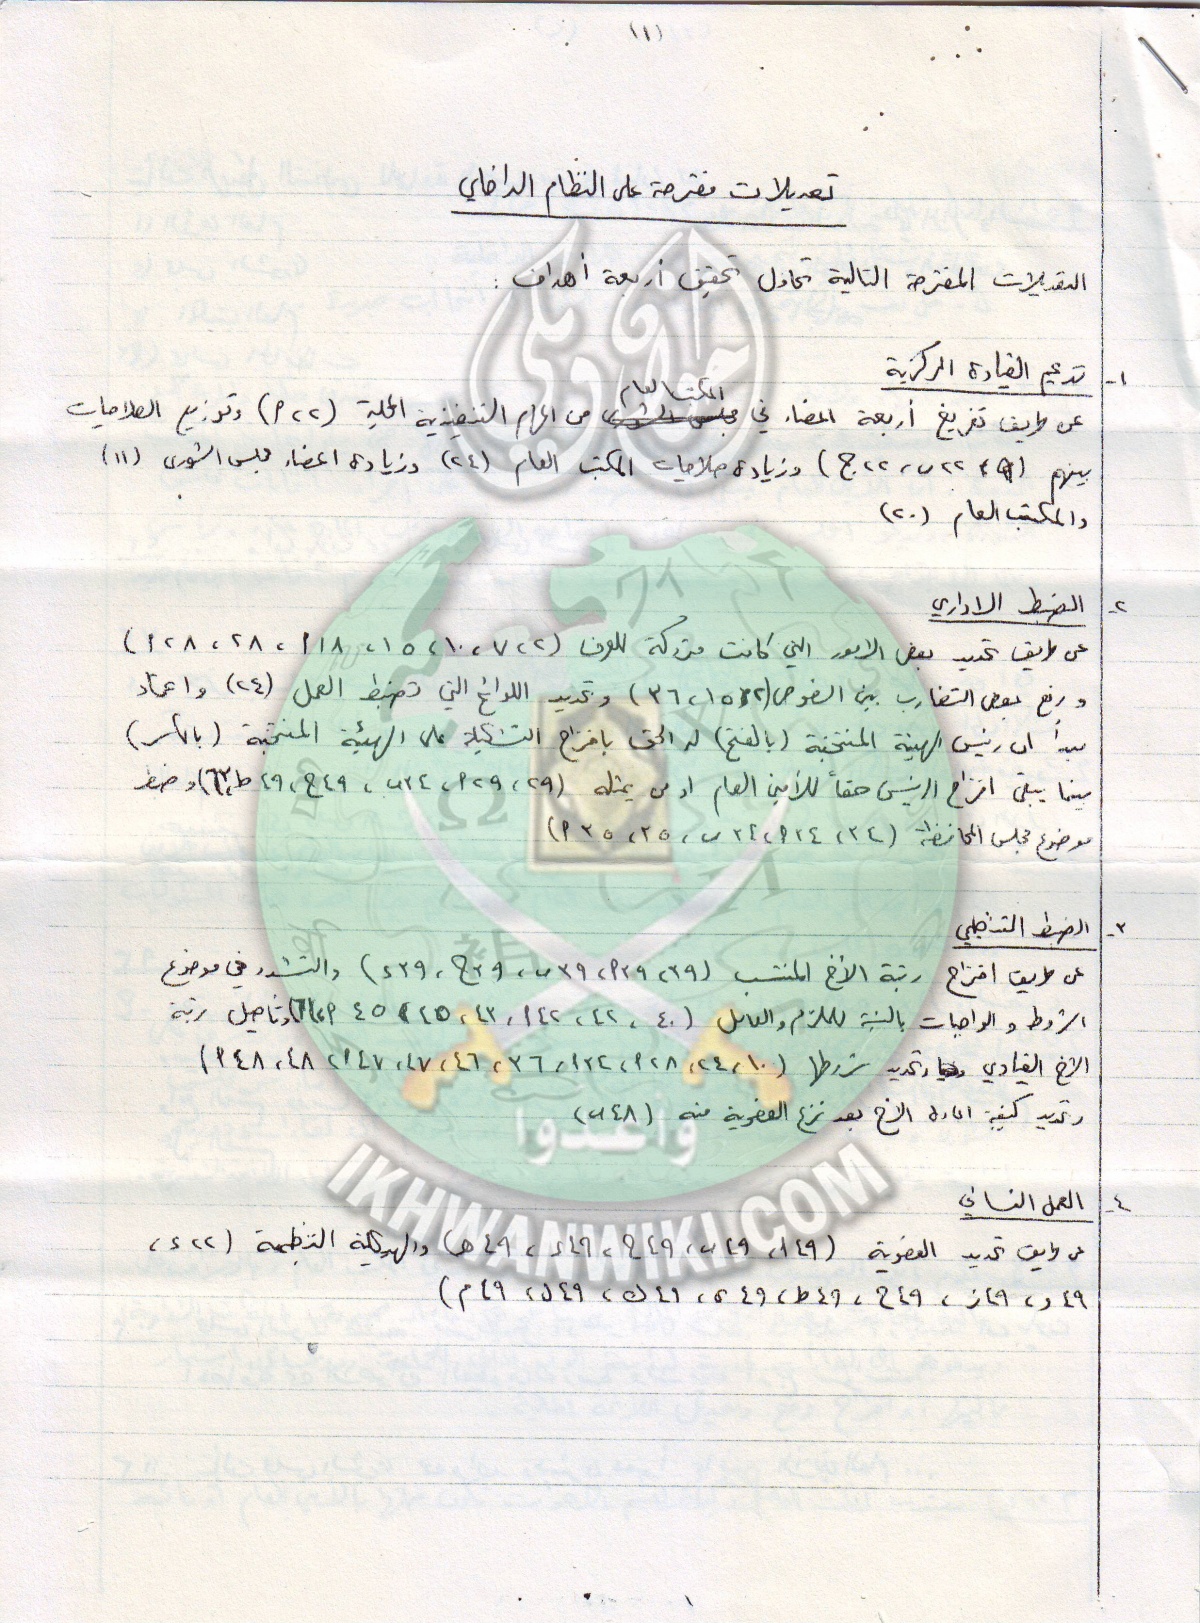 (١)
تعديلات مقترحة على النظام الداخلي
التعديلات المقترحة التالية تحاول تحقيق أربعة أهداف :
١- تدعيم القيادة المركزية
المكتب العام
عن طريق تفريغ أربعة اعضاء في من المهام التنفيذية المحلية (٢٢ م) وتوزيع الصلاحيات
بينهم ( ٢٢ ب، ٢٢ ج) وزيادة صلاحيات المكتب العام (٢٤) وزيادة اعضاء مجلس الشورى (١١)
والمكتب العام (٢٠)
٢- الضبط الاداري
عن طريق تحديد بعض الامور التي كانت متروكة للعرف (٢، ٧، ١٠، ١٥، ١٨م، ٢٨، ٢٨م)
ورفع بعض التضارب بين النصوص ( ٣٦) وتحديد اللوائح التي تضبط العمل (٢٤) واعتماد
مبدأ ان رئيس الهيئة المنتخبة (بالفتح) له الحق باقتراح التشكيلة على الهيئة المنتخبة (بالكسر)
بينما يبقى اقتراح الرئيس حقاً للأمين العام او من يمثله (٢٩، ٢٩م، ٣٤ب، ٤٩ح، ٤٩ط، ) وضبط
موضوع مجلس المحافظة (٣٤، ٣٤م، ٣٤ب، ٣٥، ٣٥م)
٣- الضبط التنظيمي
عن طريق اقتراح رتبة الأخ المنتسب (٣٩، ٣٩م، ٣٩ب، ٣٩ج، ٣٩د) والتشدد في موضوع
الشروط والواجبات بالنسبة للملتزم والعامل (٤٠، ٤٢، ٤٢م، ٤٣، ٤٥، ٤٥م، ) وتأصيل رتبة
الأخ القيادي وتحديد شروطها (١٠، ٢٤، ٢٨م، ٣٤م، ٣٦، ٤٦، ٤٧، ٤٧م، ٤٨، ٤٨م)
وتحديد كيفية اعادة الأخ بعد نزع العضوية منه (٤٨ب)
٤- العمل النسائي
عن طريق تحديد العضوية (٤٩أ، ٤٩ب، ٤٩ج، ٤٩د، ٤٩هـ) والهيكلية التنظيمية (٢٢د،
٤٩و، ٤٩ز، ٤٩ح، ٤٩ط، ٤٩ي، ٤٩ك، ٤٩ل، ٤٩م)
وأعدوا
IKHWANWIKI.COM
١